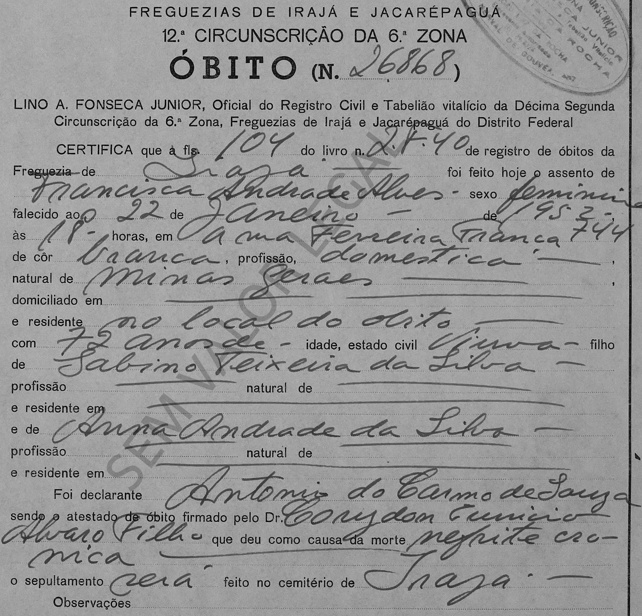 FREGUEZIAS DE IRAJÁ E JACARÉPAGUÁ
12.ª CIRCUNSCRIÇÃO DA 6.ª ZONA
ÓBITO (N. 26868)
LINO A. FONSECA JUNIOR, Oficial do Registro Civil e Tabelião vitalício da Décima Segunda
Circunscrição da 6.ª Zona, Freguezias de Irajá e Jacarépaguá do Distrito Federal
CERTIFICA que à fls. 104 do livro n. 28-40 de registro de óbitos da
Freguezia de Irajá foi feito hoje o assento de
Francisca Andrade Alves - sexo feminino
falecido ao 22 de Janeiro - de 1952 -
às 18- horas, em a rua Ferreira França 744
de côr branca, profissão, domestica - ,
natural de Minas Geraes
domiciliado em
e residente no local do obito
com 72 anos de - idade, estado civil Viuva - filho
de Sabino Teixeira da Silva -
profissão natural de
e residente em
e de Anna Andrade da Silva -
profissão natural de
e residente em
Foi declarante Antonio do Carmo de Souza
sendo o atestado de óbito firmado pelo Dr. Corydon Eunicio
Alvaro Filho que deu como causa da morte nefrite cro-
nica
o sepultamento será feito no cemitério de Irajá. -
Observações
SEM VALOR LEGAL